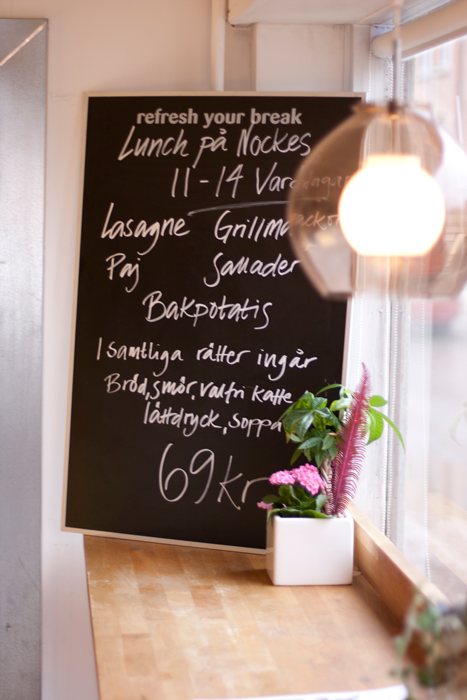 refresh your break
Lunch på Nockes
11-14 Vardagar
Lasagne Grillmackor
Paj Sallader
Bakpotatis
I samtliga rätter ingår
Bröd, smör, valfri kaffe
lättdryck, soppa
69kr